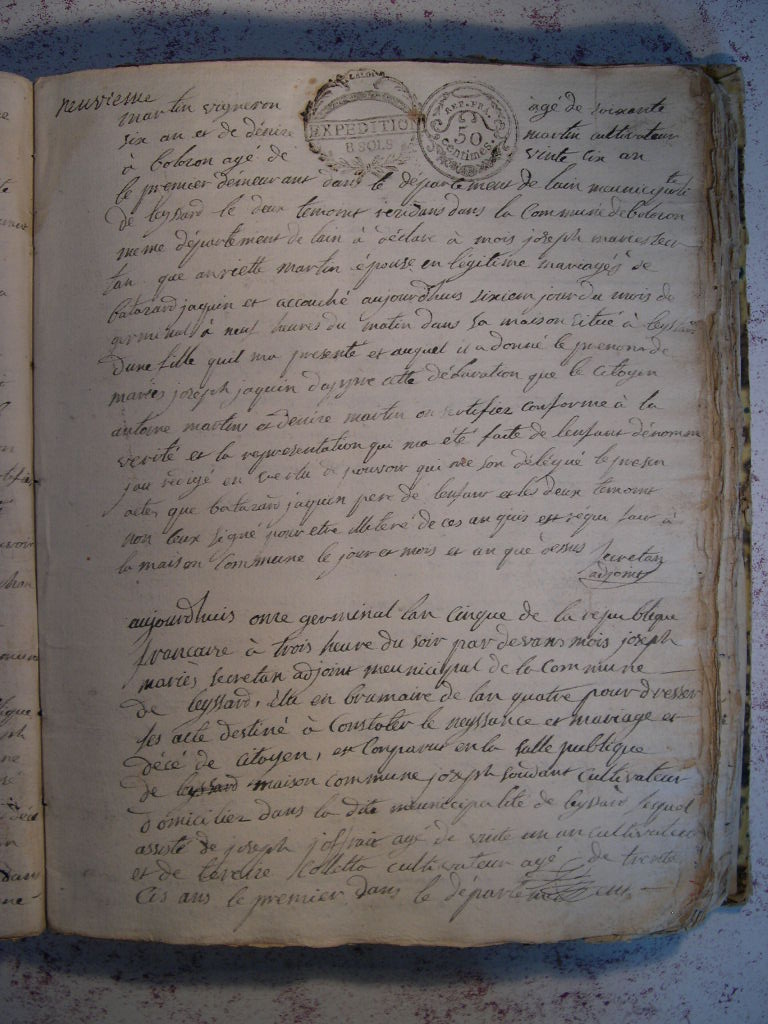 neuvieme
martin vigneron agé de soixante
LA LOI
EXPEDITION
8 SOLS
REP. FRA.
50
centimes.
six an et de denise martin cultivateur
à bolozon agé de vinte six an
le premier demeurant dans le département de lain meunicipalité
de leyssard le deux temoint residans dans la Commune de bolozon
meme département de lain à déclare à mois joseph maries secre
tan que anriette martin épouse en légitime mariages de
batazard jaquin et accouché aujourdhuis sixiem jour du mois de
germinal à neuf heures du matin dans sa maison situé à leyssard
dune fille quil ma presente et auquel il a donné le prenon de
maries joseph jaquin dapres cette déclaration que le Citoyen
antoine martins et denise martin on sertifiez conforme à la
verité et la representation qui ma été faite de lenfant dénommé
jau redigé en vertu de pouvoir qui me son délégué le presen
actes que batazard jaquin pere de lenfant et les deux temoint
non leux signé pour etre illiteré de ces an quis est requi fait à
la maison Commune le jour et mois et an que dessus Secretan
adjoint
aujourdhuis onze germinal lan Cinque de la republique
francaise à trois heure du soir par devans mois joseph
mariès secretan adjoint meunicipal de la Commune
de leyssard, élu en brumaire de lan quatre pour dresser
les acte destiné à Constoter le neyssance et mariage et
décé de Citoyen, est Comparut en la salle publique
de leyssard maison commune joseph soudant Cultivateur
domicilier dans la dite meunicipalité de leyssard lequel
assisté de joseph joffrait agé de vinte un an cultivateur
et de Colletta cultivateur agé de trente
Cis ans le premier dans le département